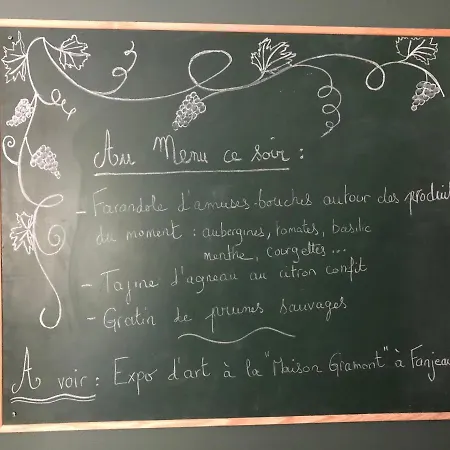 Au Menu ce soir :
- Farandole d'amuses-bouches autour des produit
du moment : aubergines, tomates, basilic
menthe, courgettes...
- Tajine d'agneau au citron confit
- Gratin de prunes sauvages
A voir : Expo d'art à la "Maison Gramont" à Fanjeau